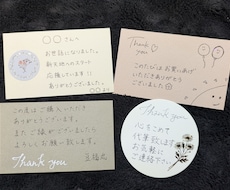 〇〇さんへ
お世話になりました。
新天地でのスタート
応援しています!!
〇〇より
Thank you
このたびはお買い上げ
いただきありがとう
ございました
この度はご購入いただき
ありがとうございます。
また ご縁がございましたら
よろしくお願い致します。
Thank you
心をこめて
代筆致します
お気軽に
ご連絡下さい